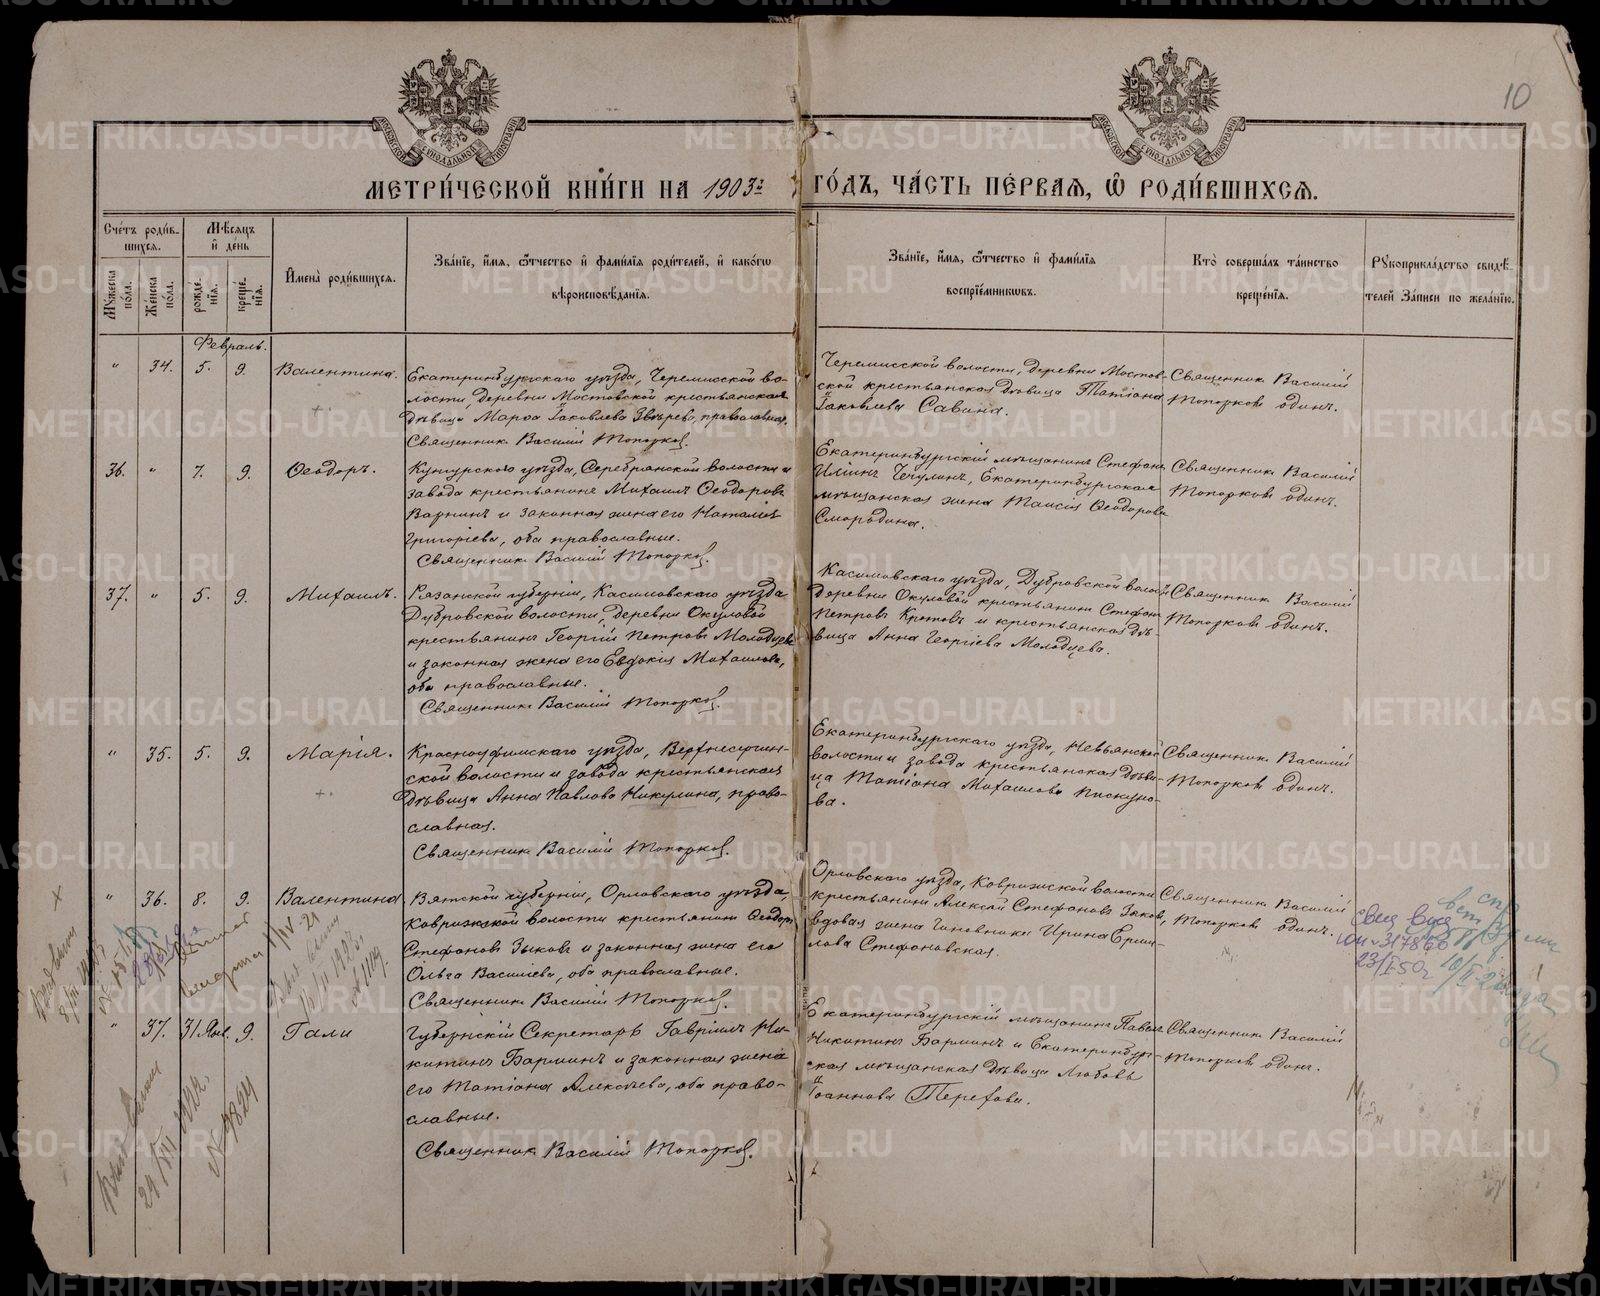 10
МЕТРИ́ЧЕСКОЙ КНИ́ГИ НА 1903й ГО́ДЪ, ЧА́СТЬ ПЕ́РВАѦ, Ѡ҆ РОДИ́ВШИХСѦ.
Сче́тъ роди́в-
шихсѧ.
Му́жеска
по́ла.
Же́нска
по́ла.
Мѣ́сѧцъ
и҆ де́нь
рожде́-
нїѧ.
креще́-
нїѧ.
И҆мена̀ роди́вшихсѧ.
Зва́нїе, и҆́мѧ, ѻ҆́тчество и҆ фами́лїѧ роди́телей, и҆ како́гѡ
вѣроисповѣ́данїѧ.
Зва́нїе, и҆́мѧ, ѻ҆́тчество и҆ фами́лїѧ
воспрїе́мникѡвъ.
Кто̀ соверша́лъ та́инство
креще́нїѧ.
Рꙋкоприкла́дство свидѣ́-
телей За́писи по жела́нїю.
Февраль.
" 34. 5. 9. Валентина.
Екатеринбургскаго уѣзда, Черемисской во-
лости, деревни Мостовской крестьянская
дѣвица Марѳа Іаковлева Звѣрева, православная.
Священникъ Василій Топорковъ.
Черемисской волости, деревни Мостов-
ской крестьянская дѣвица Татіана
Іаковлева Савина.
Священникъ Василій
Топорковъ одинъ.
36. " 7. 9. Ѳеодоръ.
Кунгурскаго уѣзда, Серебрянской волости и
завода крестьянинъ Михаилъ Ѳеодоровъ
Варнинъ и законная жена его Наталія
Григоріева, оба православные.
Священникъ Василій Топорковъ.
Екатеринбургскій мѣщанинъ Стефанъ
Иліинъ Чечулинъ, Екатеринбургская
мѣщанская жена Таисія Ѳеодорова
Смородина.
Священникъ Василій
Топорковъ одинъ.
37. " 5. 9. Михаилъ.
Рязанской губерніи, Касимовскаго уѣзда
Дубровской волости, деревни Окуловой
крестьянинъ Георгій Петровъ Молодцевъ
и законная жена его Евдокія Михаилова,
оба православные.
Священникъ Василій Топорковъ.
Касимовскаго уѣзда, Дубровской волости
деревни Окуловой крестьянинъ Стефанъ
Петровъ Кротовъ и крестьянская дѣ-
вица Анна Георгіева Молодцева.
Священникъ Василій
Топорковъ одинъ.
" 35. 5. 9. Марія.
Красноуфимскаго уѣзда, Верхнесергин-
ской волости и завода крестьянская
дѣвица Анна Павлова Никулина, право-
славная.
Священникъ Василій Топорковъ.
Екатеринбургскаго уѣзда, Невьянской
волости и завода крестьянская дѣви-
ца Татіана Михаилова Пискуно-
ва.
Священникъ Василій
Топорковъ одинъ.
" 36. 8. 9. Валентина
Вятской губерніи, Орловскаго уѣзда,
Коврижской волости крестьянинъ Ѳеодоръ
Стефановъ Зыковъ и законная жена его
Ольга Василіева, оба православные.
Священникъ Василій Топорковъ.
Орловскаго уѣзда, Коврижской волости
крестьянинъ Алексій Стефановъ Зыковъ,
вдовая жена чиновника Ирина Ерми-
лова Стефановская.
Священникъ Василій
Топорковъ одинъ.
23/I-50г
" 37. 31 Янв. 9. Гали
Губернскій Секретарь Гавріилъ Ни-
китинъ Барминъ и законная жена
его Татіана Алексѣева, оба право-
славные.
Священникъ Василій Топорковъ.
Екатеринбургскій мѣщанинъ Павелъ
Никитинъ Барминъ и Екатеринбург-
ская мѣщанская дѣвица Любовь
Іоаннова Терехова.
Священникъ Василій
Топорковъ одинъ.
METRIKI.GASO-URAL.RU